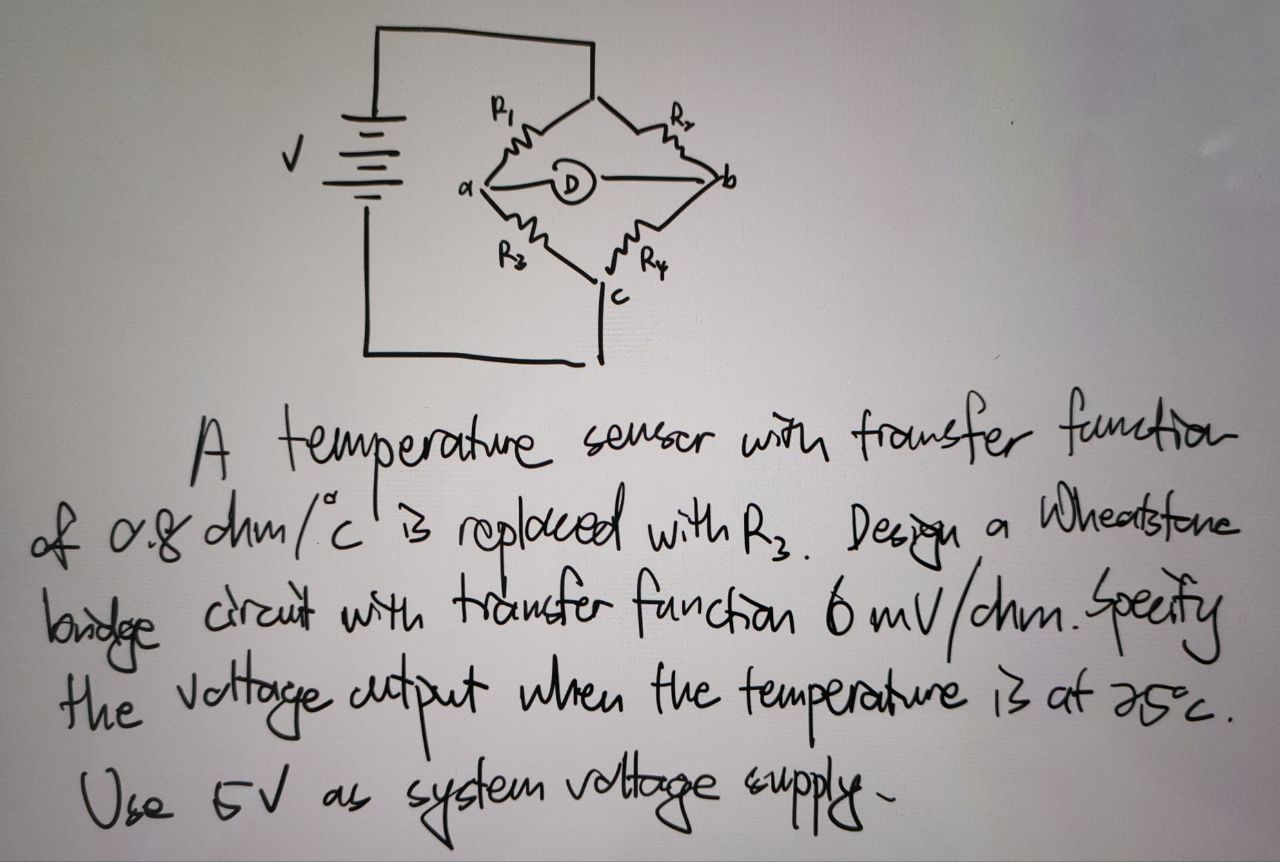 R₁
R₂
V
a
D
b
R₃
R₄
c
A temperature sensor with transfer function
of 0.8 ohm/°c is replaced with R₃. Design a Wheatstone
bridge circuit with transfer function 6 mV/ohm. Specify
the voltage output when the temperature is at 25°c.
Use 5V as system voltage supply.